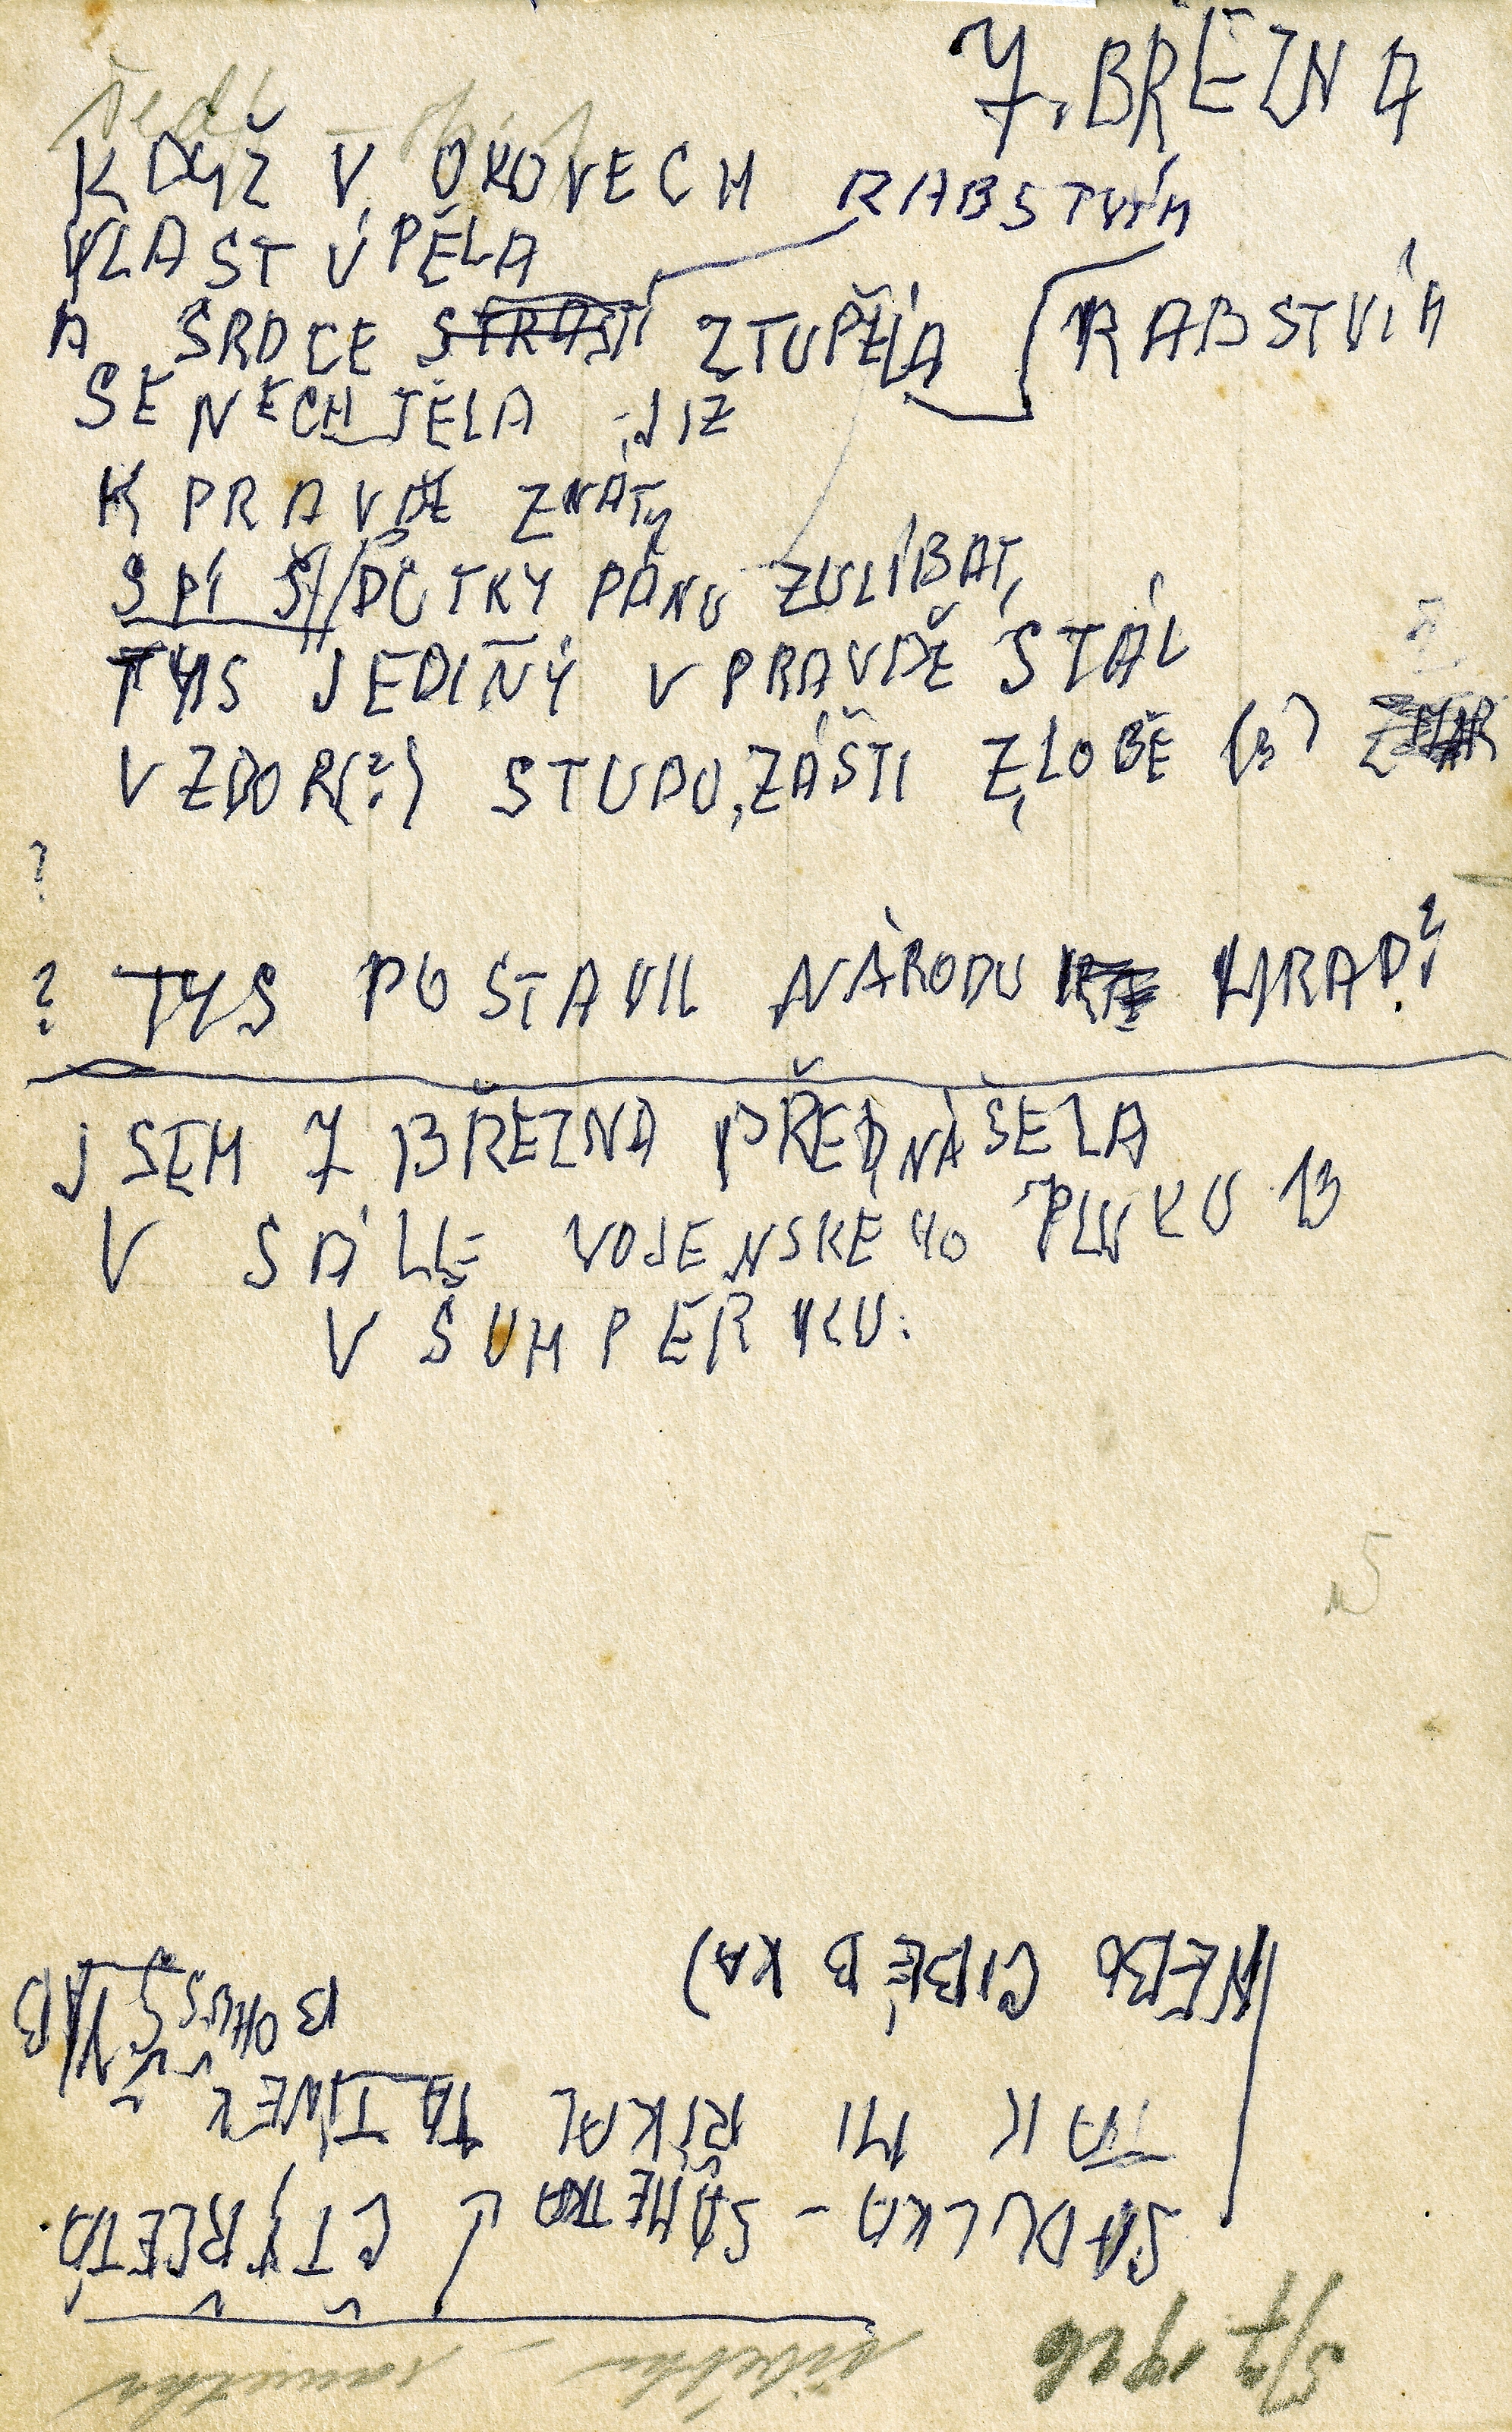 7. BŘEZNA
KDYŽ V OKOVECH RABSTVÍM
VLAST ÚPĚLA
A SRDCE STRASTÍ ZTUPĚLÁ RABSTVÍM
SE NECHTĚLA JIŽ
K PRAVDĚ ZNÁTY
SPÍŠ/DŮTKY PÁNU ZULÍBAT,
TYS JEDINÝ V PRAVDĚ STÁL
VZDOR(?) STUDU, ZÁŠTI ZLOBĚ (?)
?
? TYS POSTAVIL NÁRODU HRAD?
JSEM 7 BŘEZNA PŘEDNÁŠELA
V SÁLLE VOJENSKÉHO PLUKU 13
V ŠUMPERKU.
5
5/7 1926
SADULKA - SAMETKA ČTYŘLETÁ
TAK MI ŘÍKAL TATÍNEK
BOHUŠ
NEBO CIBĚBKA)